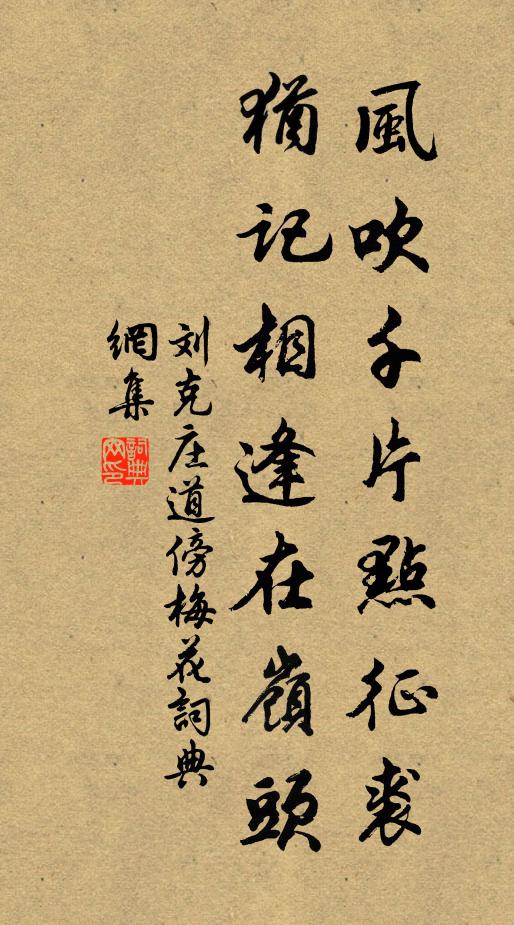 風吹千片點征裘
猶記相逢在嶺頭
刘克庄道傍梅花詞典
網集
詞典网印